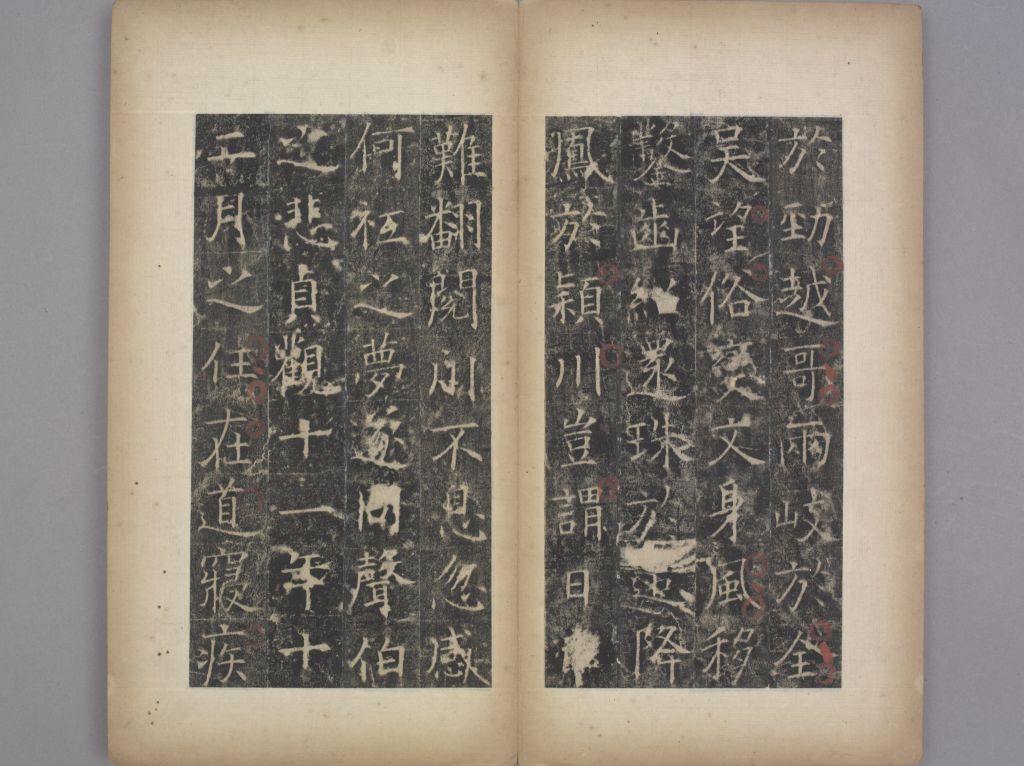 於勁越哥兩岐於全
吳望俗變文身風移
鑿齒縱還珠於遠降
鳳於穎川豈謂日
難翻閱川不息忽感
何祗之夢遽同聲伯
之悲貞觀十一年十
二月之任在道寢疾